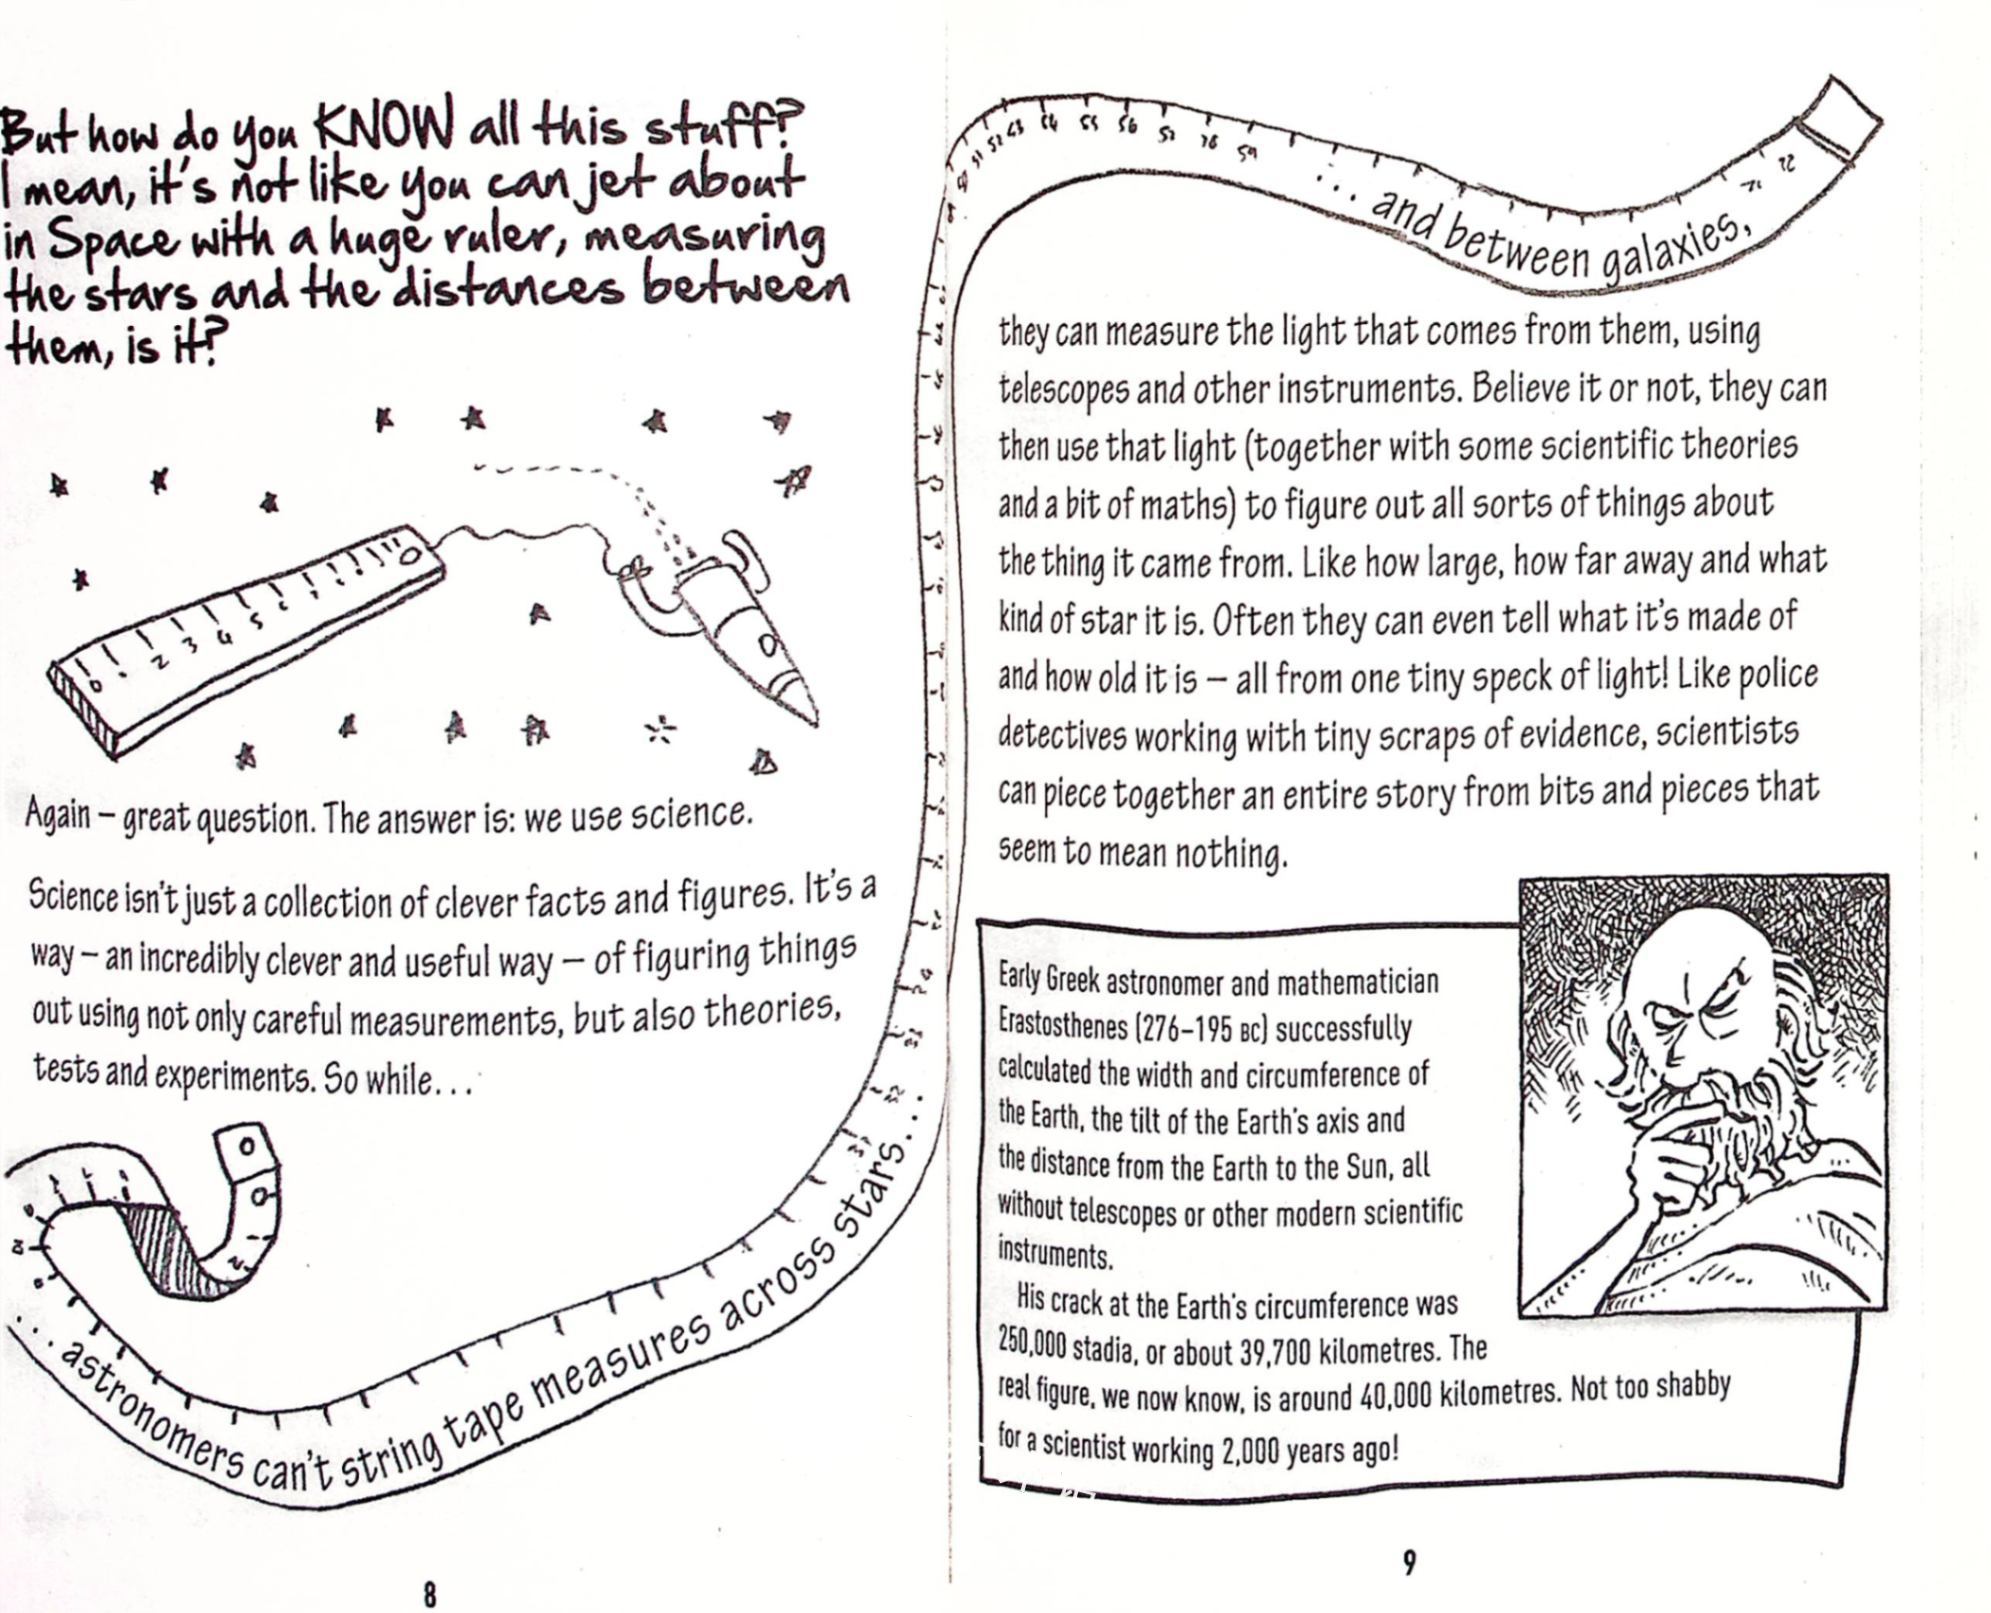 But how do you KNOW all this stuff?
I mean, it's not like you can jet about
in Space with a huge ruler, measuring
the stars and the distances between
them, is it?
0 1 2 3 4 5
Again – great question. The answer is: we use science.
Science isn't just a collection of clever facts and figures. It's a
way – an incredibly clever and useful way – of figuring things
out using not only careful measurements, but also theories,
tests and experiments. So while...
...astronomers can't string tape measures across stars...
8
51 52 53 54 55 56 57 59
71 72
...and between galaxies,
they can measure the light that comes from them, using
telescopes and other instruments. Believe it or not, they can
then use that light (together with some scientific theories
and a bit of maths) to figure out all sorts of things about
the thing it came from. Like how large, how far away and what
kind of star it is. Often they can even tell what it's made of
and how old it is – all from one tiny speck of light! Like police
detectives working with tiny scraps of evidence, scientists
can piece together an entire story from bits and pieces that
seem to mean nothing.
Early Greek astronomer and mathematician
Erastosthenes (276–195 BC) successfully
calculated the width and circumference of
the Earth, the tilt of the Earth's axis and
the distance from the Earth to the Sun, all
without telescopes or other modern scientific
instruments.
His crack at the Earth's circumference was
250,000 stadia, or about 39,700 kilometres. The
real figure, we now know, is around 40,000 kilometres. Not too shabby
for a scientist working 2,000 years ago!
9